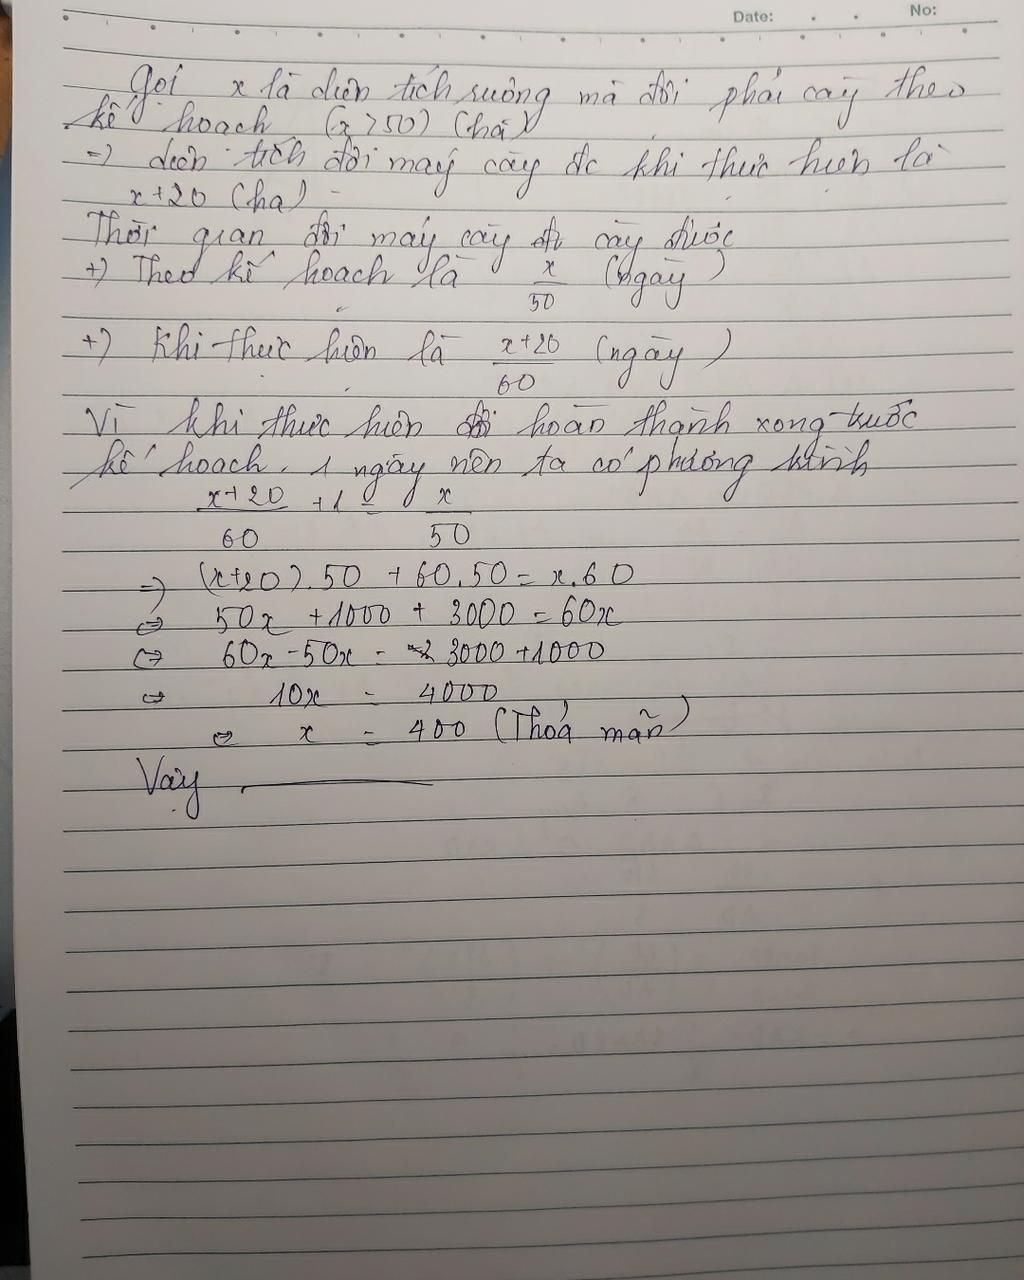 Date: No:
Gọi x là diện tích ruộng mà đội phải cày theo
kế hoạch (x > 50) (ha)
=> diện tích đội máy cày đc khi thực hiện là
x+20 (ha)
Thời gian đội máy cày cày được
+) Theo kế hoạch là x/50 (ngày)
+) Khi thực hiện là x+20/60 (ngày)
Vì khi thực hiện đội hoàn thành xong trước
kế hoạch 1 ngày nên ta có phương trình
x+20/60 +1 = x/50
=> (x+20).50 + 60.50 = x.60
<=> 50x + 1000 + 3000 = 60x
<=> 60x - 50x = 3000 + 1000
<=> 10x = 4000
<=> x = 400 (Thoả mãn)
Vậy